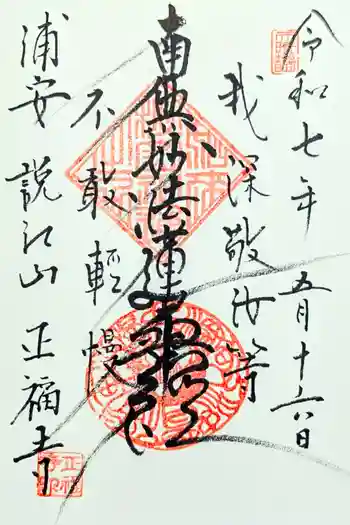 令和七年五月十六日
我深敬汝等
南無妙法蓮華経
不敢輕慢
浦安 説江山 正福寺